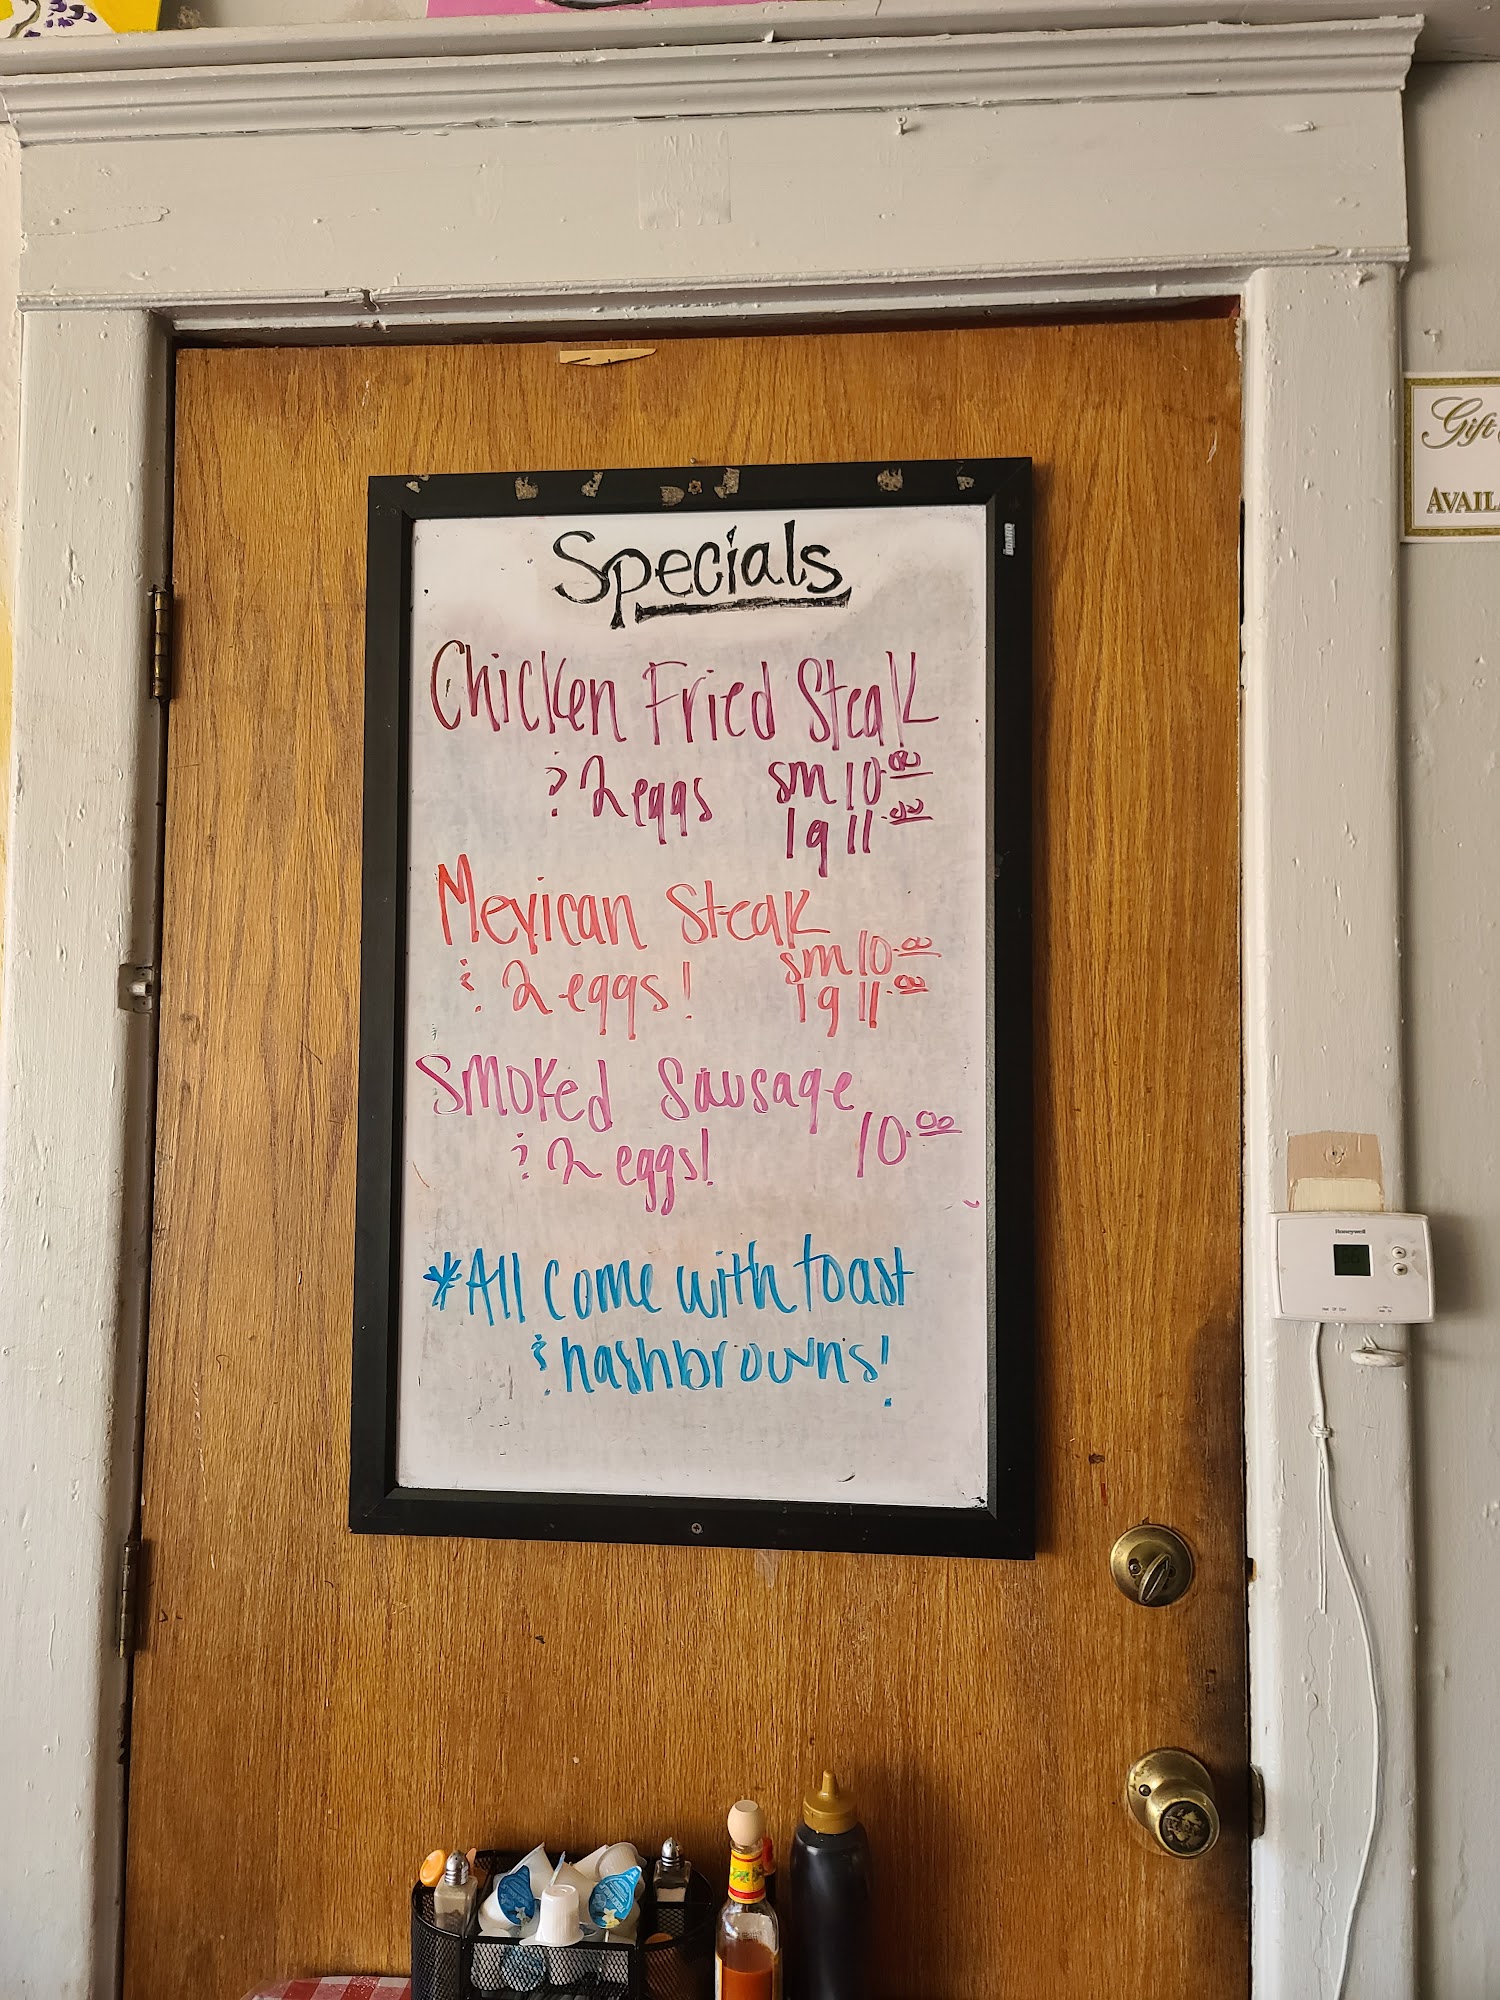 Specials
Chicken Fried Steak
& 2 eggs sm 10.00
lg 11.00
Mexican Steak
& 2 eggs! sm 10.00
lg 11.00
Smoked Sausage
& 2 eggs! 10.00
*All come with toast
& hashbrowns!
Gift
AVAIL
Honeywell
BOARD